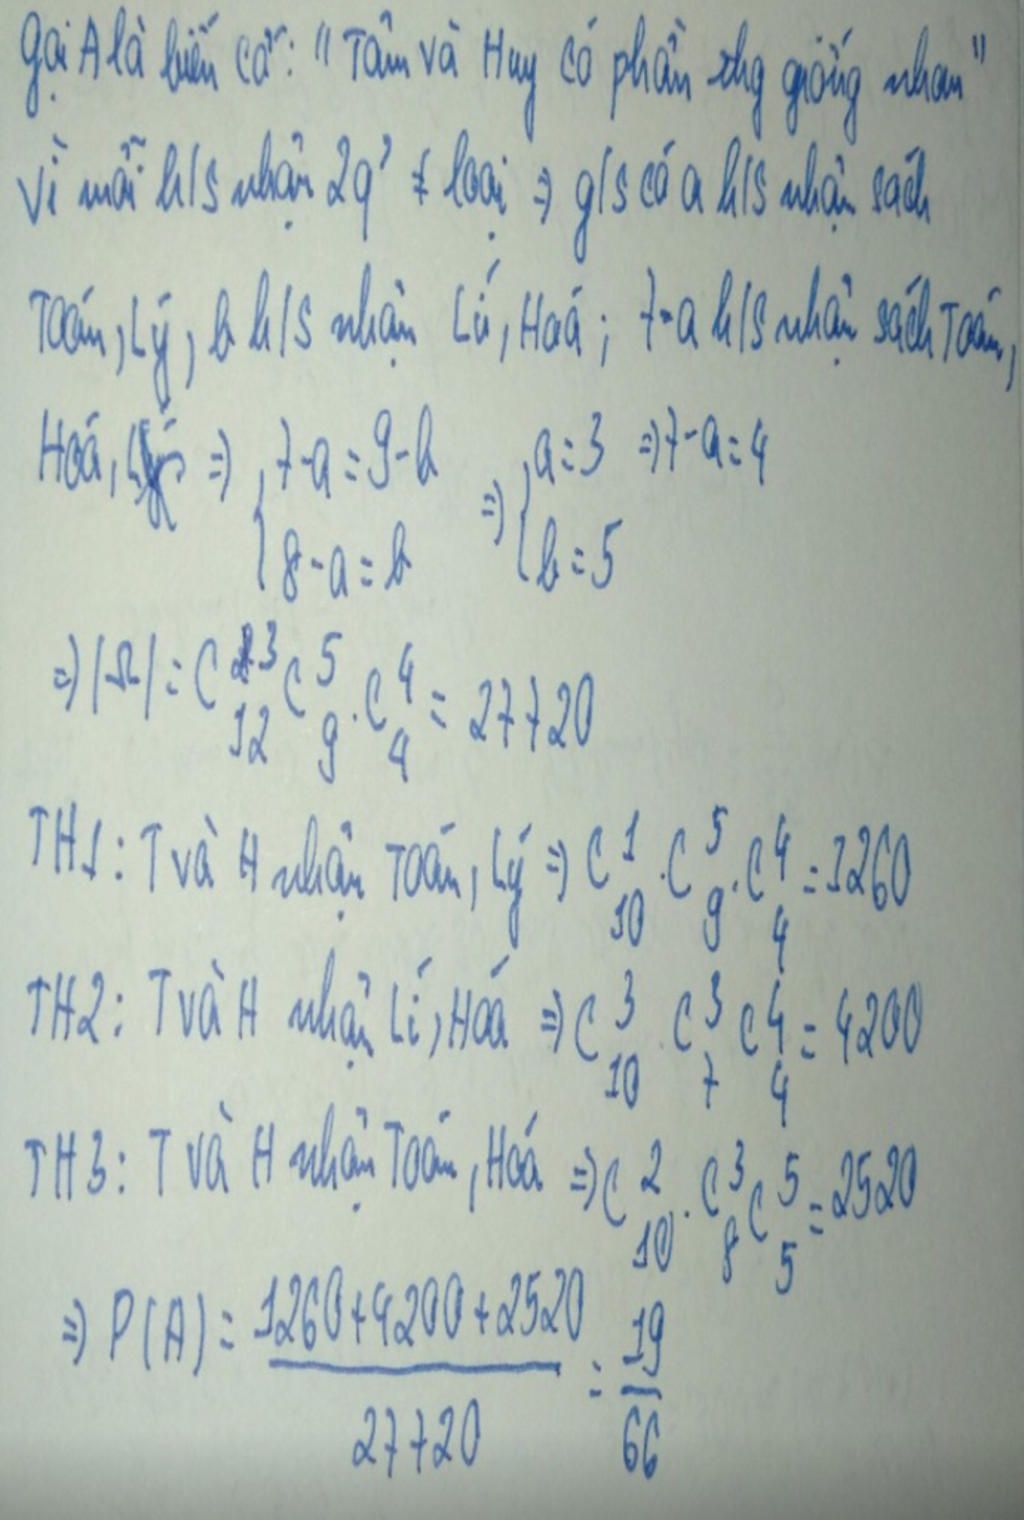 Gọi A là biến cố: "Tâm và Huy có phần thg giống nhau"
Vì mỗi h/s nhận 2q' ≠ loại => g/s có a h/s nhận sách
Toán, Lý, b h/s nhận Lí, Hoá; 7-a h/s nhận sách Toán,
Hoá, => { 7-a = 9-b => { a = 3 => 7-a = 4
8-a = b b = 5
=> |Ω| = C³₁₂ C⁵₉ . C⁴₄ = 27720
TH1: T và H nhận Toán, Lý => C¹₁₀ . C⁵₉ . C⁴₄ = 1260
TH2: T và H nhận Lí, Hoá => C³₁₀ C³₇ C⁴₄ = 4200
TH3: T và H nhận Toán, Hoá => C²₁₀ . C³₈ C⁵₅ = 2520
=> P(A) = (1260+4200+2520)/27720 = 19/66